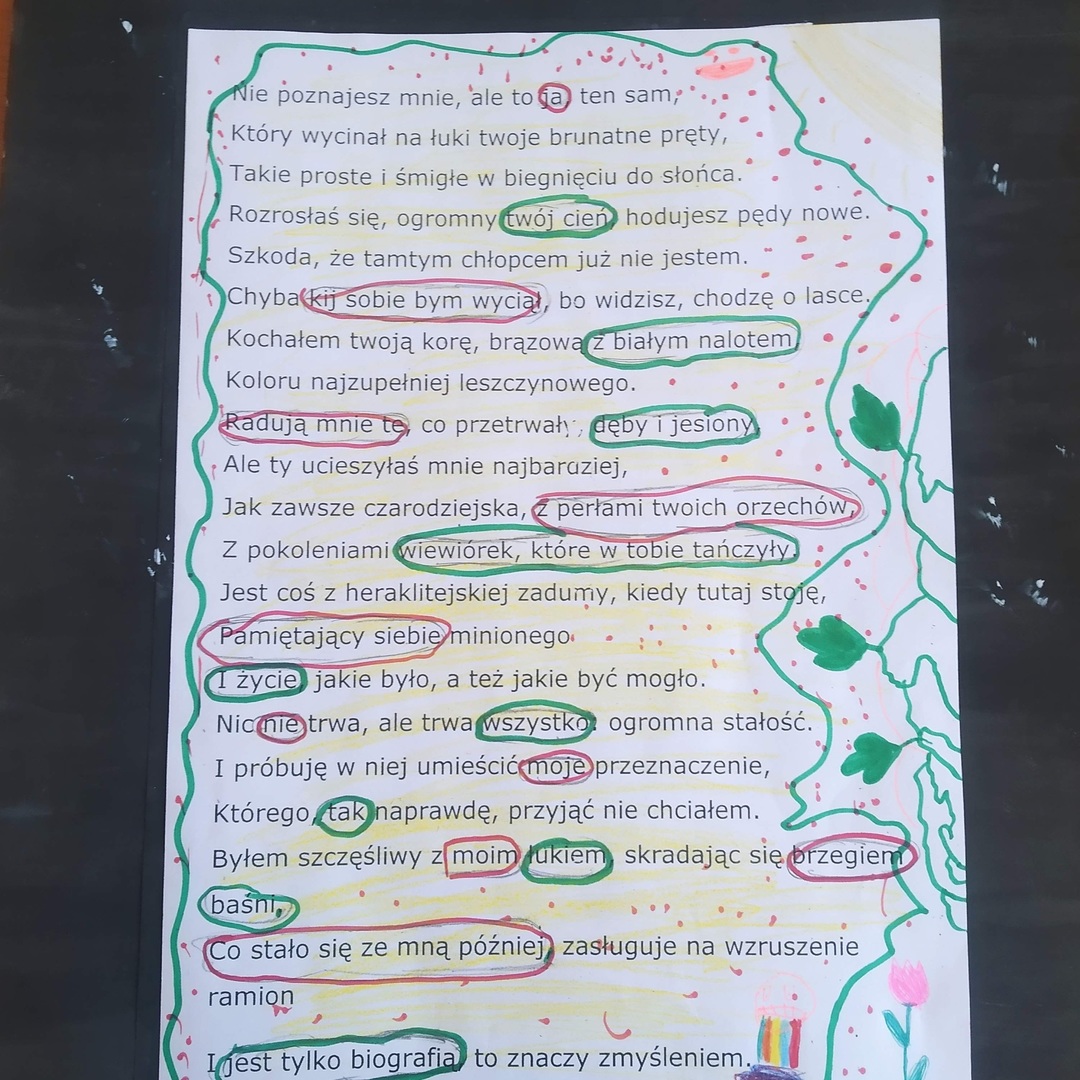 Nie poznajesz mnie, ale to ja, ten sam,
Który wycinał na łuki twoje brunatne pręty,
Takie proste i śmigłe w biegnięciu do słońca.
Rozrosłaś się, ogromny twój cień, hodujesz pędy nowe.
Szkoda, że tamtym chłopcem już nie jestem.
Chyba kij sobie bym wyciął, bo widzisz, chodzę o lasce.
Kochałem twoją korę, brązową z białym nalotem,
Koloru najzupełniej leszczynowego.
Radują mnie te, co przetrwały, dęby i jesiony,
Ale ty ucieszyłaś mnie najbardziej,
Jak zawsze czarodziejska, z perłami twoich orzechów,
Z pokoleniami wiewiórek, które w tobie tańczyły.
Jest coś z heraklitejskiej zadumy, kiedy tutaj stoję,
Pamiętający siebie minionego
I życie, jakie było, a też jakie być mogło.
Nic nie trwa, ale trwa wszystko: ogromna stałość.
I próbuję w niej umieścić moje przeznaczenie,
Którego, tak naprawdę, przyjąć nie chciałem.
Byłem szczęśliwy z moim łukiem, skradając się brzegiem
baśni,
Co stało się ze mną później, zasługuje na wzruszenie
ramion
I jest tylko biografią, to znaczy zmyśleniem.